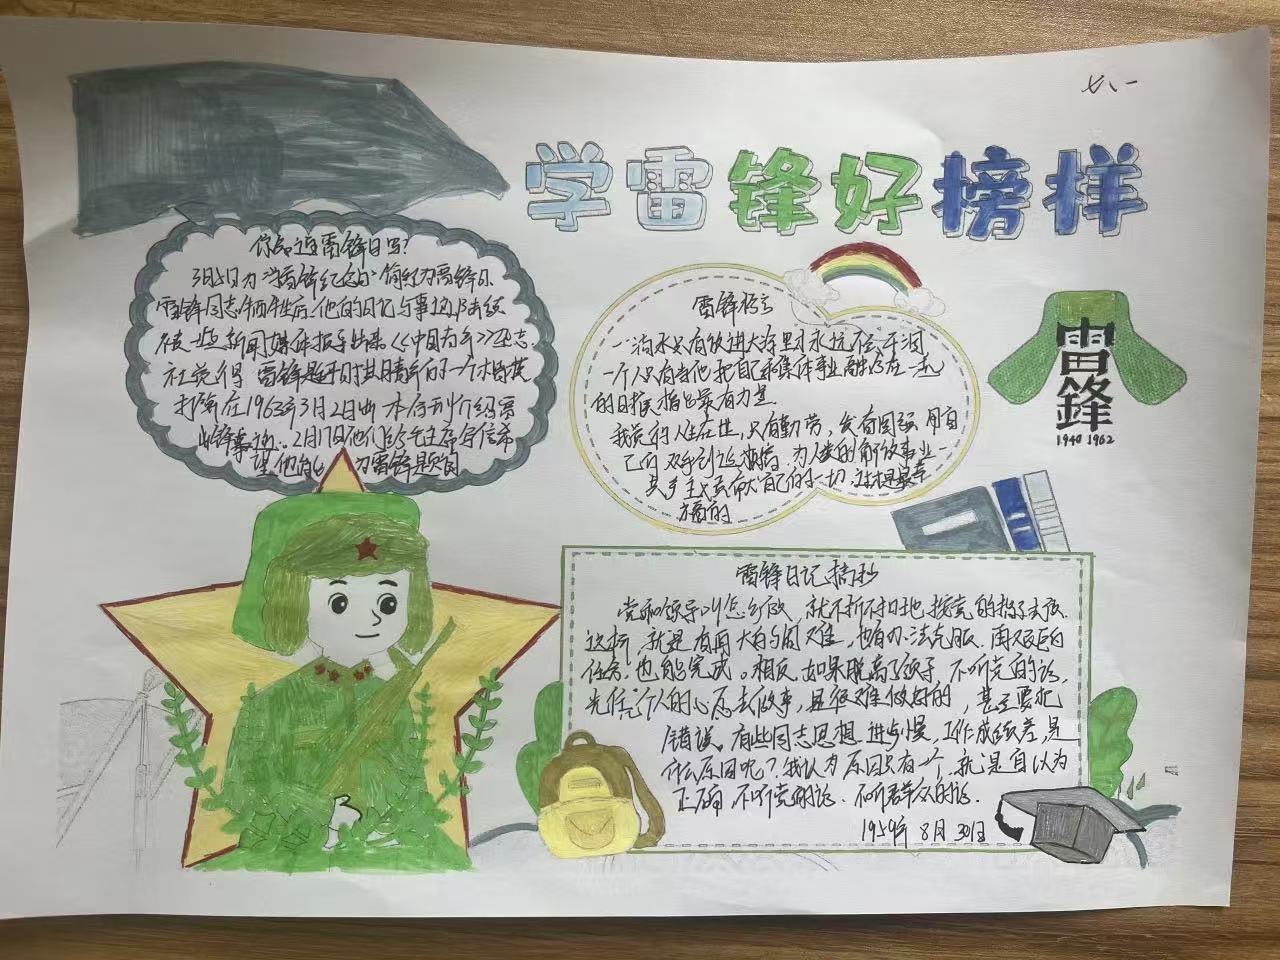 七八一
学雷锋好榜样
你知道雷锋日吗?
3月5日为"学雷锋纪念日"简称为雷锋日
雷锋同志牺牲后,他的日记与事迹陆续
被一些新闻媒体报导出来《中国青年》杂志
社觉得 雷锋是
在1963年3月2日出
2月17日他们
望他 为雷锋题词
雷锋名言
一滴水只有放进大海里才永远不会干涸
一个人只有当他把自己和集体事业融合在一起
的时候 最有力量
我觉 人生在世,只有勤劳,发奋图强 用自
己的双手创造 为人类的解放事业一
共产主义贡献自己的一切,这才是最幸
福的
雷锋
1940 1962
雷锋日记摘抄
党和领导叫怎么做,就不折不扣地 按党的指示去做
这样,就是有再大的困难,也有办法克服,再艰巨的
任务,也能完成。相反,如果脱离了领导,不听党的话,
光凭个人的心愿去做事,是很难做好的,甚至要犯
错误。有些同志思想进步慢,工作成绩差,是
什么原因呢?我认为原因只有一个,就是自以为
正确,不听党的话,不听群众的话。
1959年8月30日